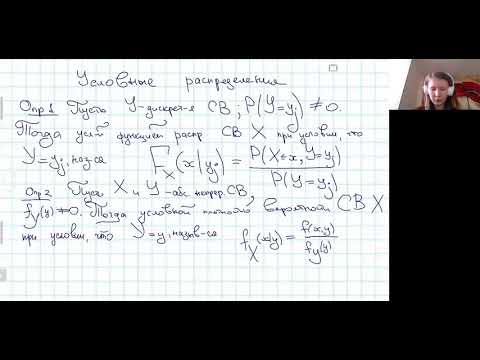 Условные распределения
Опр1 Пусть Y-дискрет-я СВ; P(Y=yⱼ) ≠ 0.
Тогда усл функцией распр СВ X при условии, что
Y=yⱼ, наз-ся F_X(x|yⱼ) = P(X≤x, Y=yⱼ) / P(Y=yⱼ)
Опр2 Пусть X и Y-абс непрер. СВ,
f_Y(y)≠0. Тогда условной плотностью вероятности СВ X
при условии, что Y=y, назыв-ся f_X(x|y) = f(x,y) / f_Y(y)